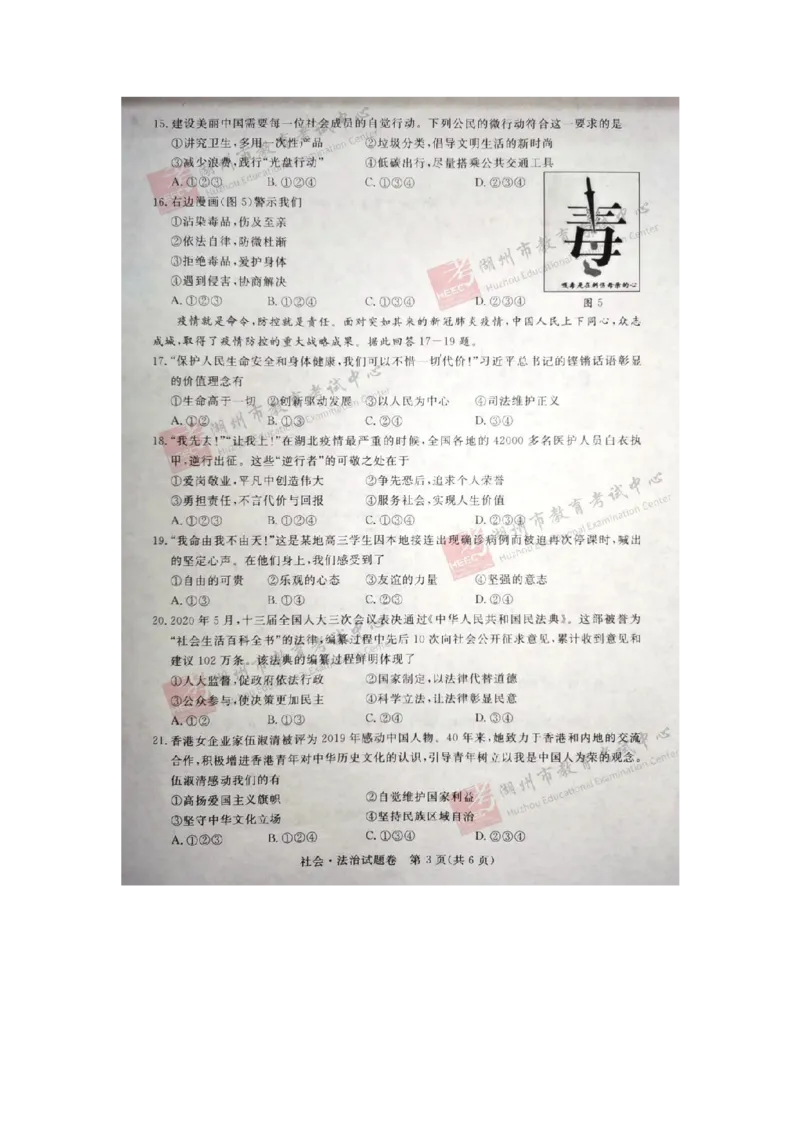 15.建设美丽中国需要每一位社会成员的自觉行动。下列公民的微行动符合这一要求的是
①讲究卫生,多用一次性产品 ②垃圾分类,倡导文明生活的新时尚
③减少浪费,践行“光盘行动” ④低碳出行,尽量搭乘公共交通工具
A.①②③ B.①②④ C.①③④ D.②③④
16.右边漫画(图5)警示我们
①沾染毒品,伤及至亲
②依法自律,防微杜渐
③拒绝毒品,爱护身体
④遇到侵害,协商解决
A.①②③ B.①②④ C.①③④ D.②③④
毒
吸毒是在刺伤母亲的心
图5
疫情就是命令,防控就是责任。面对突如其来的新冠肺炎疫情,中国人民上下同心,众志
成城,取得了疫情防控的重大战略成果。据此回答17-19题。
17.“保护人民生命安全和身体健康,我们可以不惜一切代价!”习近平总书记的铿锵话语彰显
的价值理念有
①生命高于一切 ②创新驱动发展 ③以人民为中心 ④司法维护正义
A.①② B.①③ C.②④ D.③④
18.“我先去!”“让我上!”在湖北疫情最严重的时候,全国各地的42000多名医护人员白衣执
甲,逆行出征。这些“逆行者”的可敬之处在于
①爱岗敬业,平凡中创造伟大 ②争先恐后,追求个人荣誉
③勇担责任,不言代价与回报 ④服务社会,实现人生价值
A.①②③ B.①②④ C.①③④ D.②③④
19.“我命由我不由天!”这是某地高三学生因本地接连出现确诊病例而被迫再次停课时,喊出
的坚定心声。在他们身上,我们感受到了
①自由的可贵 ②乐观的心态 ③友谊的力量 ④坚强的意志
A.①③ B.①④ C.②③ D.②④
20.2020年5月,十三届全国人大三次会议表决通过《中华人民共和国民法典》。这部被誉为
“社会生活百科全书”的法律,编纂过程中先后10次向社会公开征求意见,累计收到意见和
建议102万条。该法典的编纂过程鲜明体现了
①人大监督,促政府依法行政 ②国家制定,以法律代替道德
③公众参与,使决策更加民主 ④科学立法,让法律彰显民意
A.①② B.①③ C.②④ D.③④
21.香港女企业家伍淑清被评为2019年感动中国人物。40年来,她致力于香港和内地的交流
合作,积极增进香港青年对中华历史文化的认识,引导青年树立以我是中国人为荣的观念。
伍淑清感动我们的有
①高扬爱国主义旗帜 ②自觉维护国家利益
③坚守中华文化立场 ④坚持民族区域自治
A.①②③ B.①②④ C.①③④ D.②③④
社会·法治试题卷 第3页(共6页)